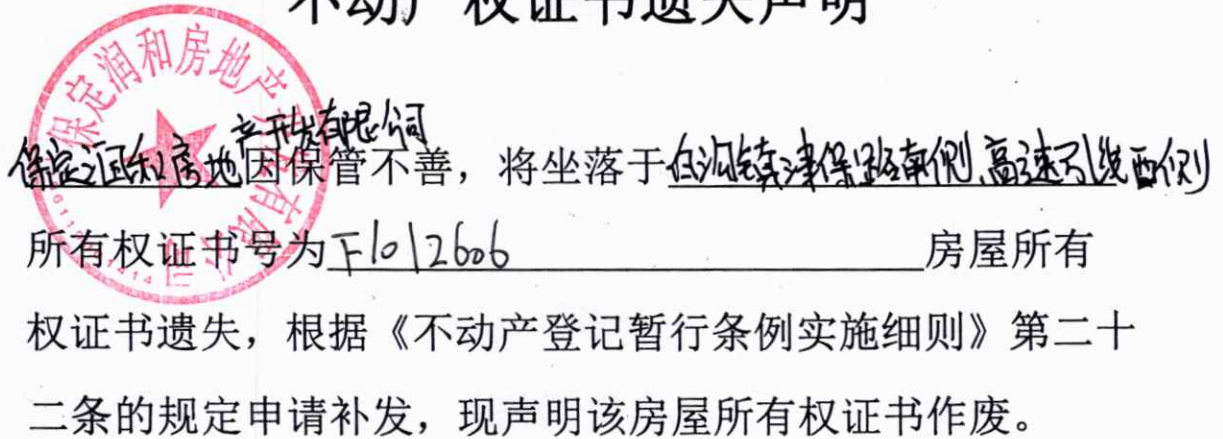 不动产权证书遗失声明
保定润和房地产开发有限公司因保管不善，将坐落于白沟镇津保路南侧、高速引线西侧
所有权证书号为F1012606房屋所有
权证书遗失，根据《不动产登记暂行条例实施细则》第二十
二条的规定申请补发，现声明该房屋所有权证书作废。
保定润和房地产开发有限公司